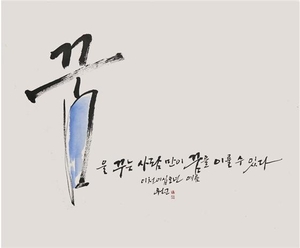 꿈
을 꾸는 사람만이 꿈을 이룰 수 있다
여름